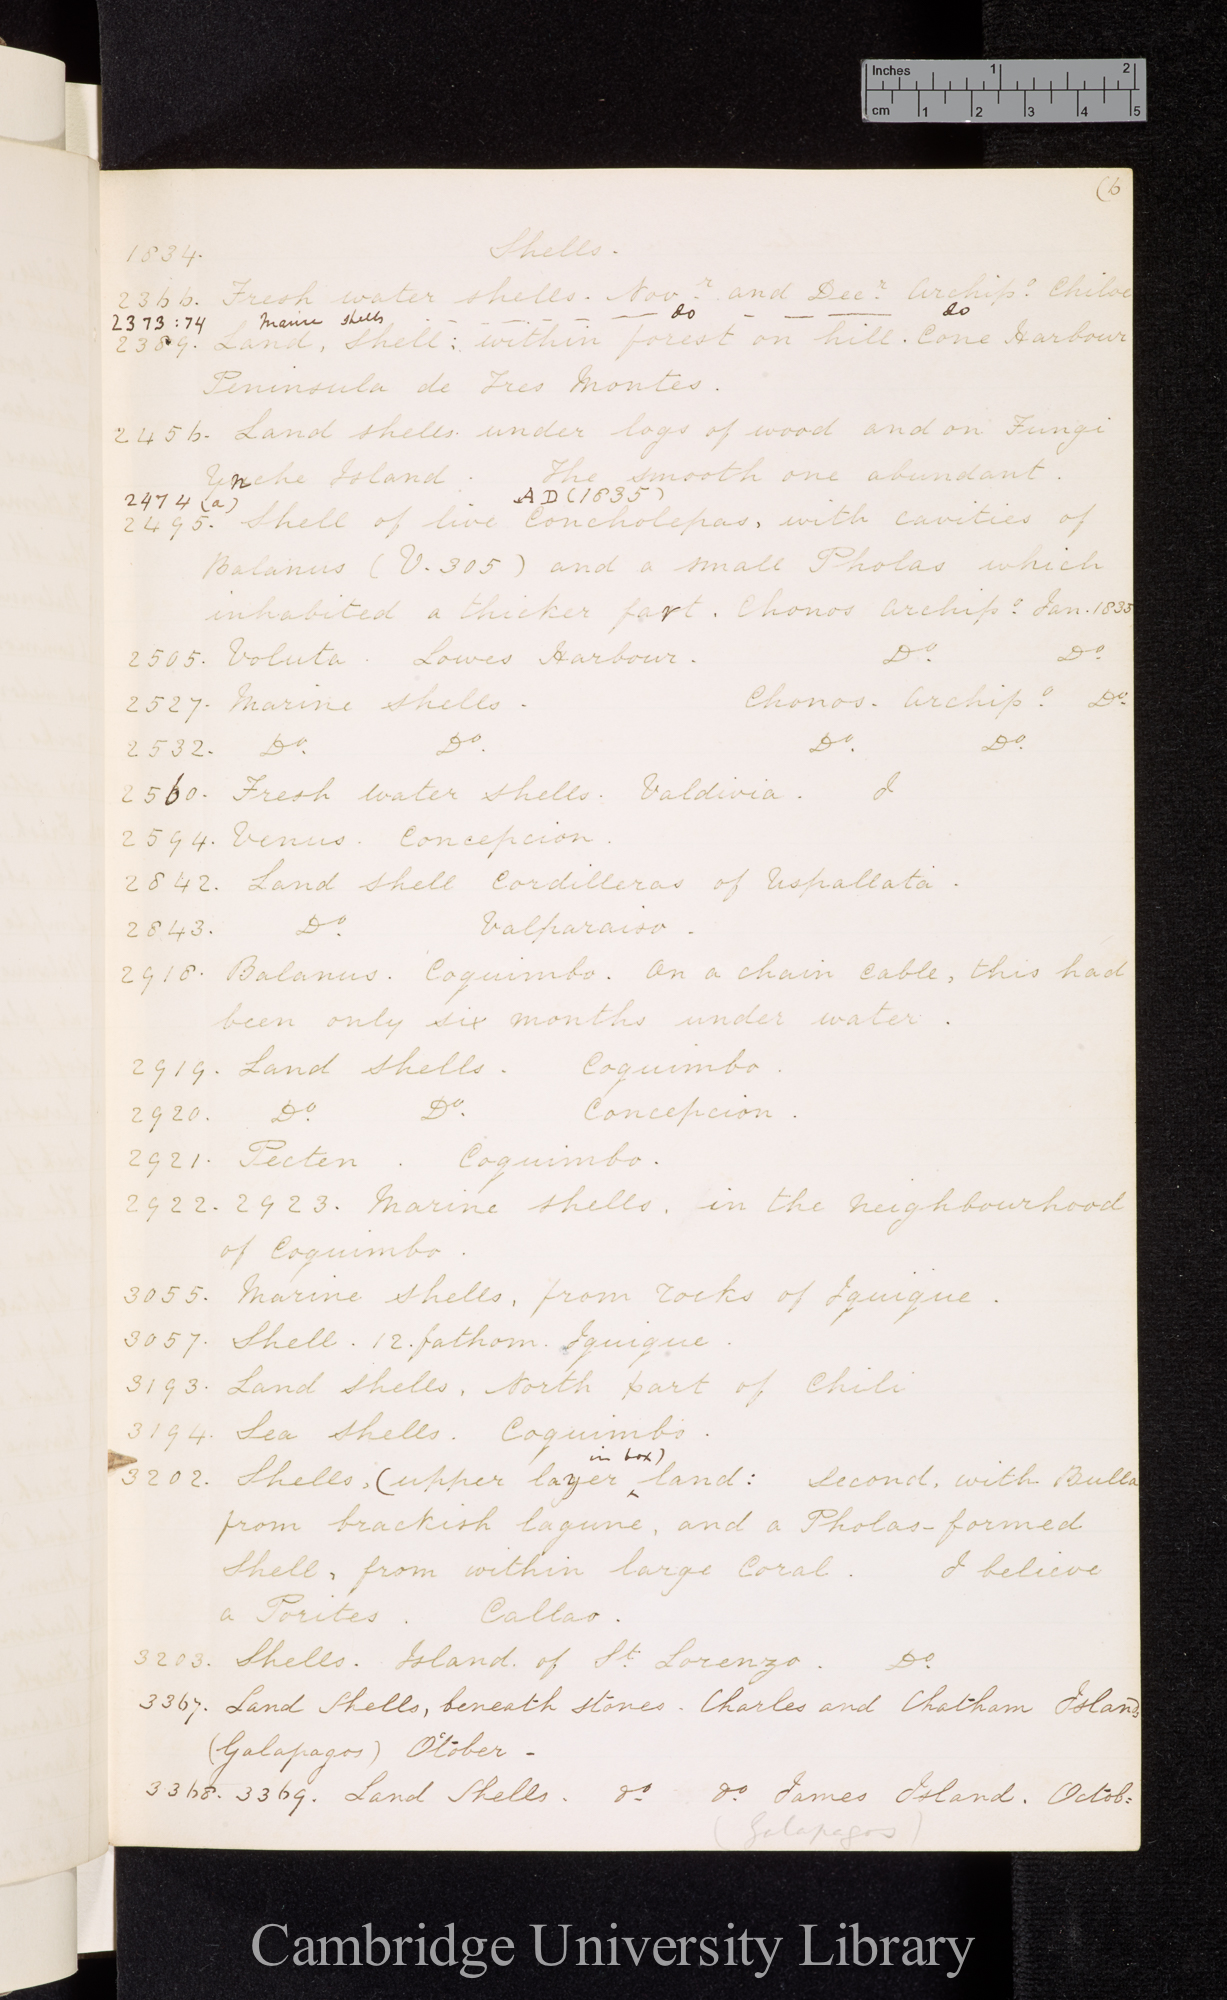 Inches 1 2
cm 1 2 3 4 5
(6
1834. Shells.
2366. Fresh water shells. Nov.r and Dec.r Archip.o Chiloe
2373:74 Marine shells - - - - - do - - - do
2389. Land, shell: within forest on hill. Cone Harbour
Peninsula de Tres Montes.
2456. Land shells under logs of wood and on Fungi
Ynche Island. The smooth one abundant.
2474 (a) AD (1835)
2495. Shell of live Concholepas, with cavities of
Balanus (V. 305) and a small Pholas which
inhabited a thicker part. Chonos Archip.o Jan. 1835
2505. Voluta. Lowes Harbour. Do. Do.
2527. Marine shells. Chonos. Archip.o Do.
2532. Do. Do. Do. Do.
2560. Fresh water shells. Valdivia. J
2594. Venus. Concepcion.
2842. Land shell Cordilleras of Uspallata.
2843. Do. Valparaiso.
2918. Balanus. Coquimbo. On a chain cable, this had
been only six months under water.
2919. Land shells. Coquimbo.
2920. Do. Do. Concepcion.
2921. Pecten. Coquimbo.
2922. 2923. Marine shells, in the neighbourhood
of Coquimbo.
3055. Marine shells, from rocks of Iquique.
3057. Shell. 12. fathom. Iquique.
3193. Land shells, North part of Chili
3194. Sea shells. Coquimbo.
in box)
3202. Shells, (upper layer ^ land: second, with Bulla
from brackish lagune, and a Pholas-formed
shell, from within large Coral. I believe
a Porites. Callao.
3203. Shells. Island. of St. Lorenzo. Do.
3367. Land Shells, beneath stones. Charles and Chatham Islands
(Galapagos) October -
3368. 3369. Land Shells. do. do. James Island. Octob:
(Galapagos)
Cambridge University Library